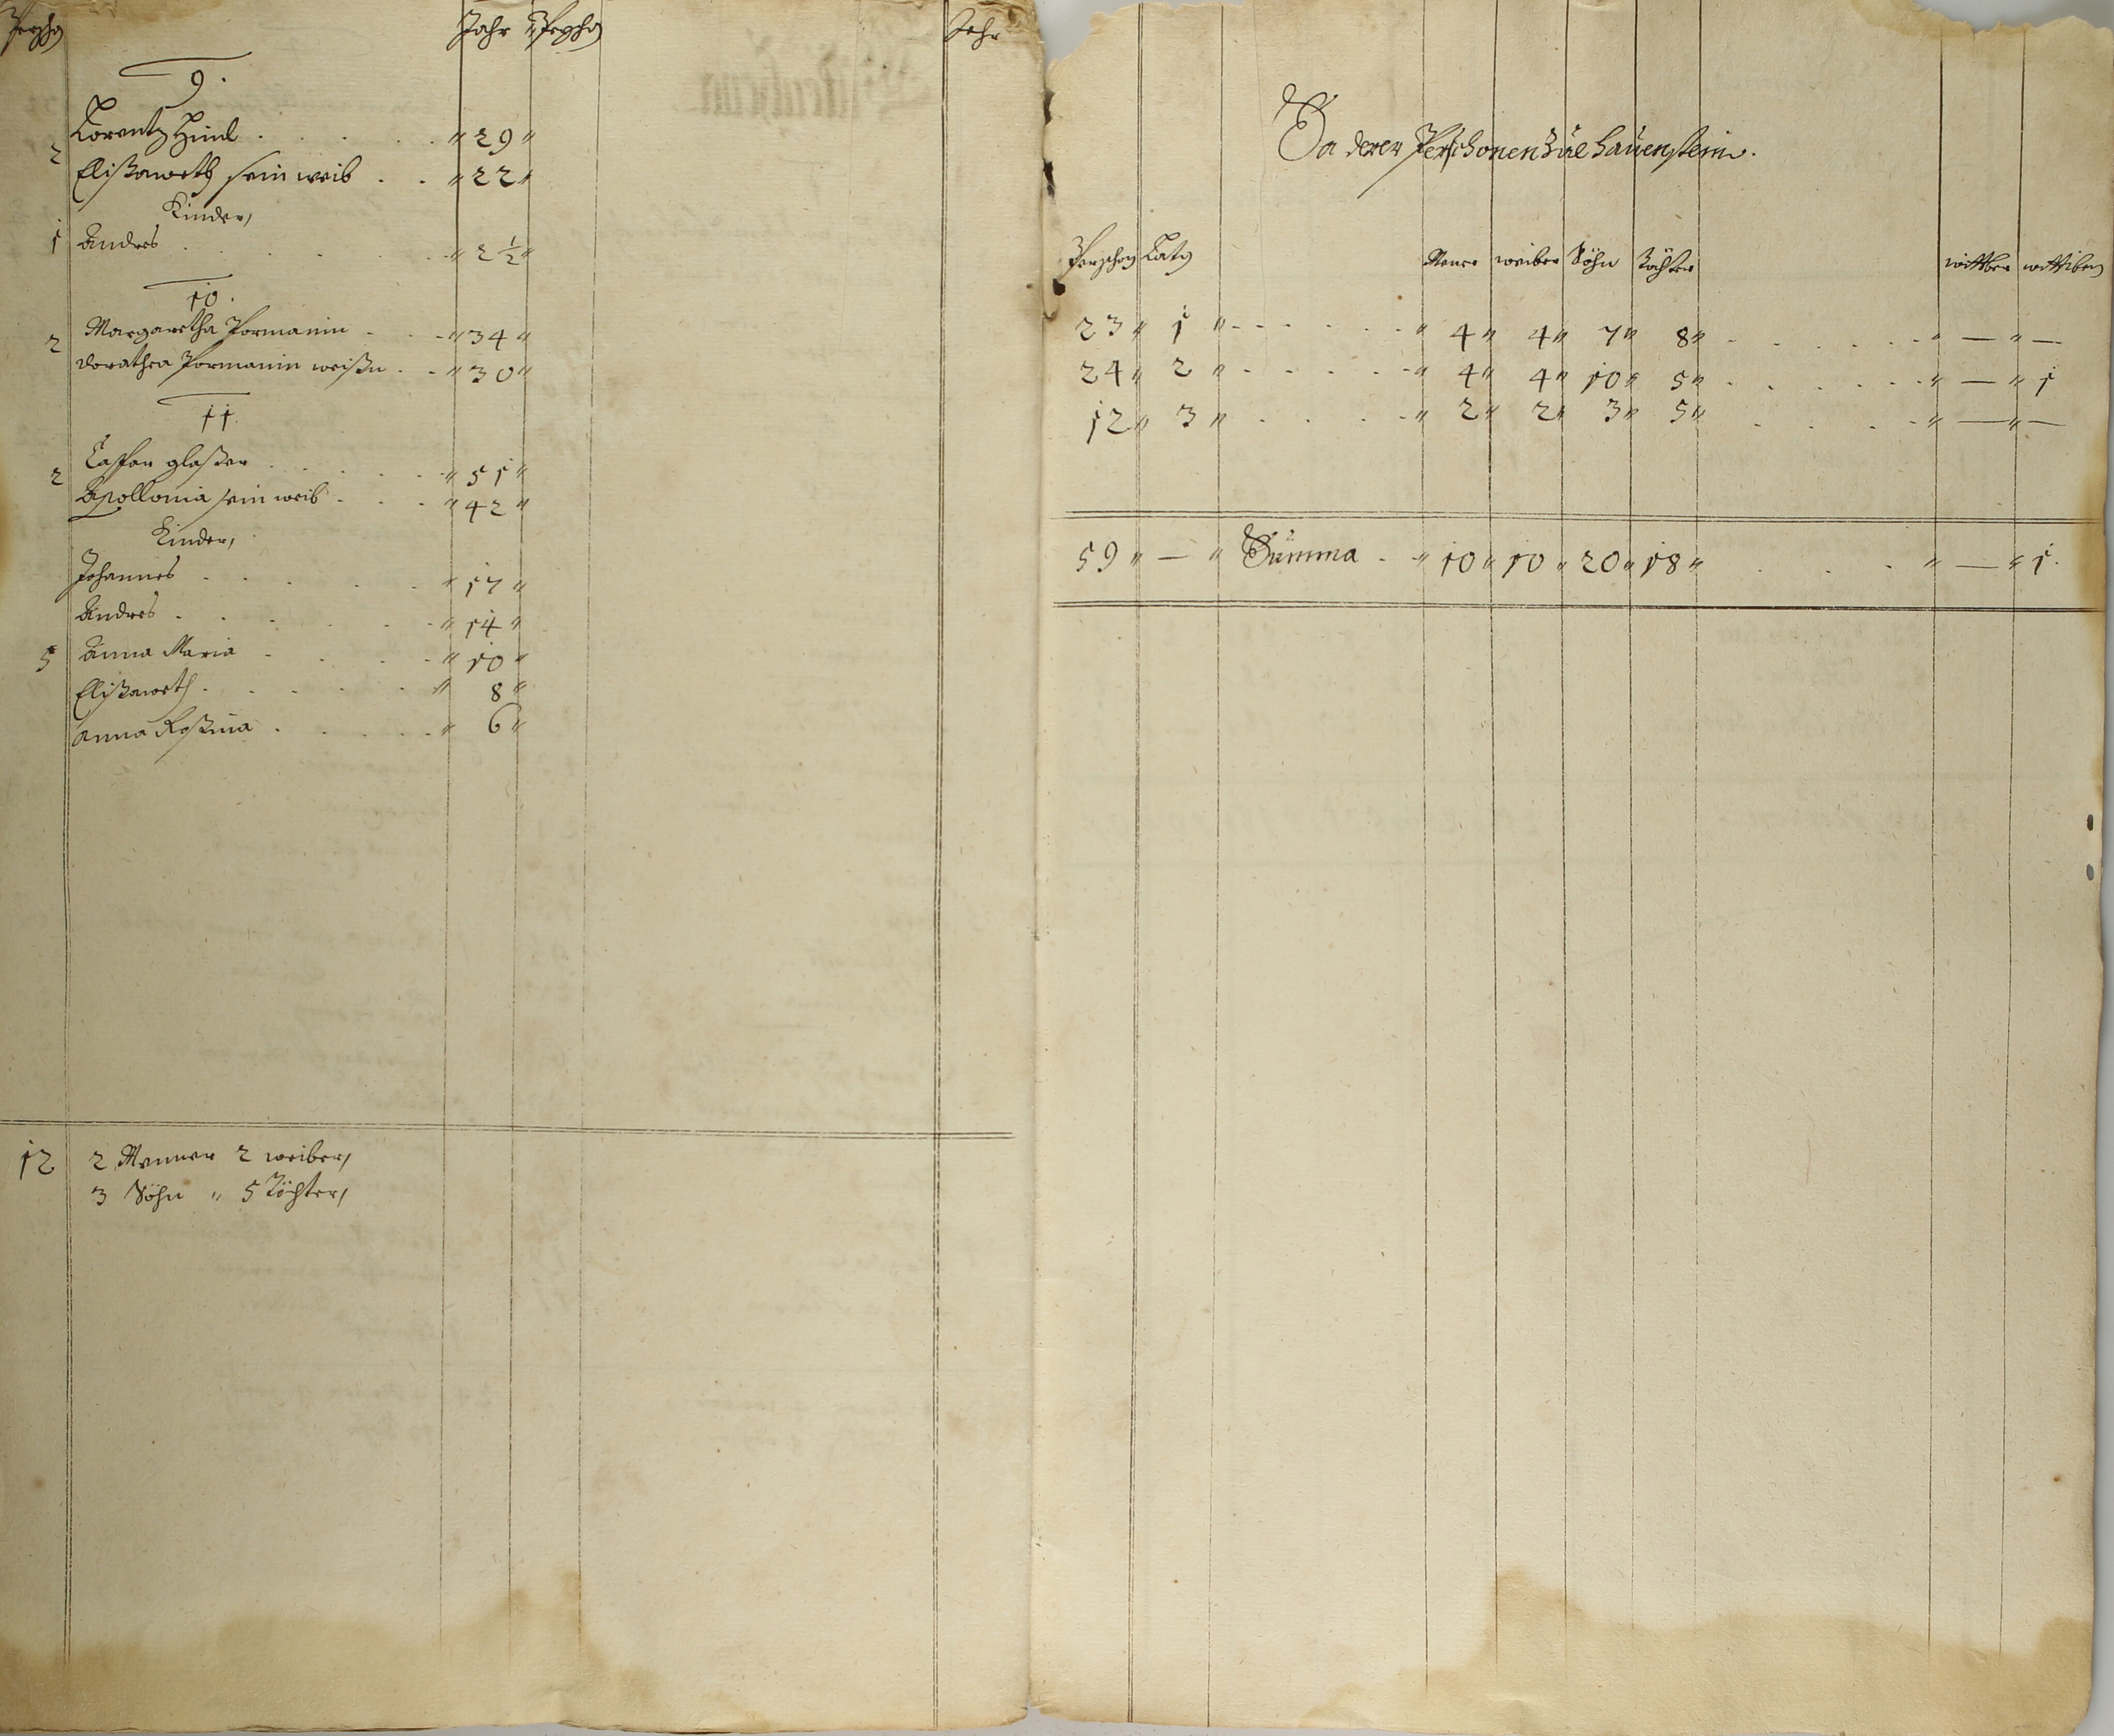 Perschon Jahr Perschon Jahr
9.
Lorentz Himl . . . . . " 29 "
2
Elißaweth sein weib . . " 22 "
Kinder,
1 Andres . . . . . " 2 1/2 "
10.
2 Margaretha Pormanin . . " 34 "
dorathea Pormanin . . " 30 "
11
Caspar glaßer . . . . " 51 "
2
Apollonia sein weib . . . " 42 "
Kinder,
Johannes . . . . . " 17 "
Andres . . . . . . " 14 "
5 Anna Maria . . . . " 10 "
Elißaweth . . . . . " 8 "
anna Roßina . . . . . " 6 "
12 2 Menner 2 weiber,
3 Söhn " 5 Töchter,
derer Perschonen Zue Hauenstein.
Perschon Latg Mener weiber Söhn Töchter wittber wittiben
23 " 1 " . . . . . " 4 " 4 " 7 " 8 " . . . . . " — " —
24 " 2 " . . . . . " 4 " 4 " 10 " 5 " . . . . . " — " 1
12 " 3 " . . . . " 2 " 2 " 3 " 5 " . . . . " — " —
59 " — " Summa . " 10 " 10 " 20 " 18 " . . . " — " 1.